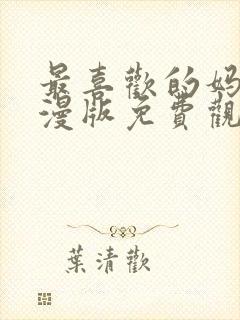 最喜歡的媽
漫版免費觀
葉清歡